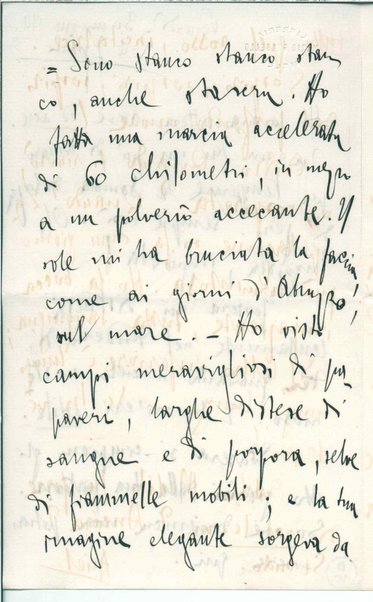 = Sono stanco stanco stan
co, anche stasera. Ho
fatta una marcia accelerata
di 60 chilometri, in mezzo
a un polverio accecante. Il
sole mi ha bruciata la faccia,
come ai giorni d'Abruzzo,
sul mare. – Ho visto
campi meravigliosi di pa-
paveri, larghe distese di
sangue e di porpora, selve
di fiammelle mobili; e la tua
imagine elegante sorgeva da